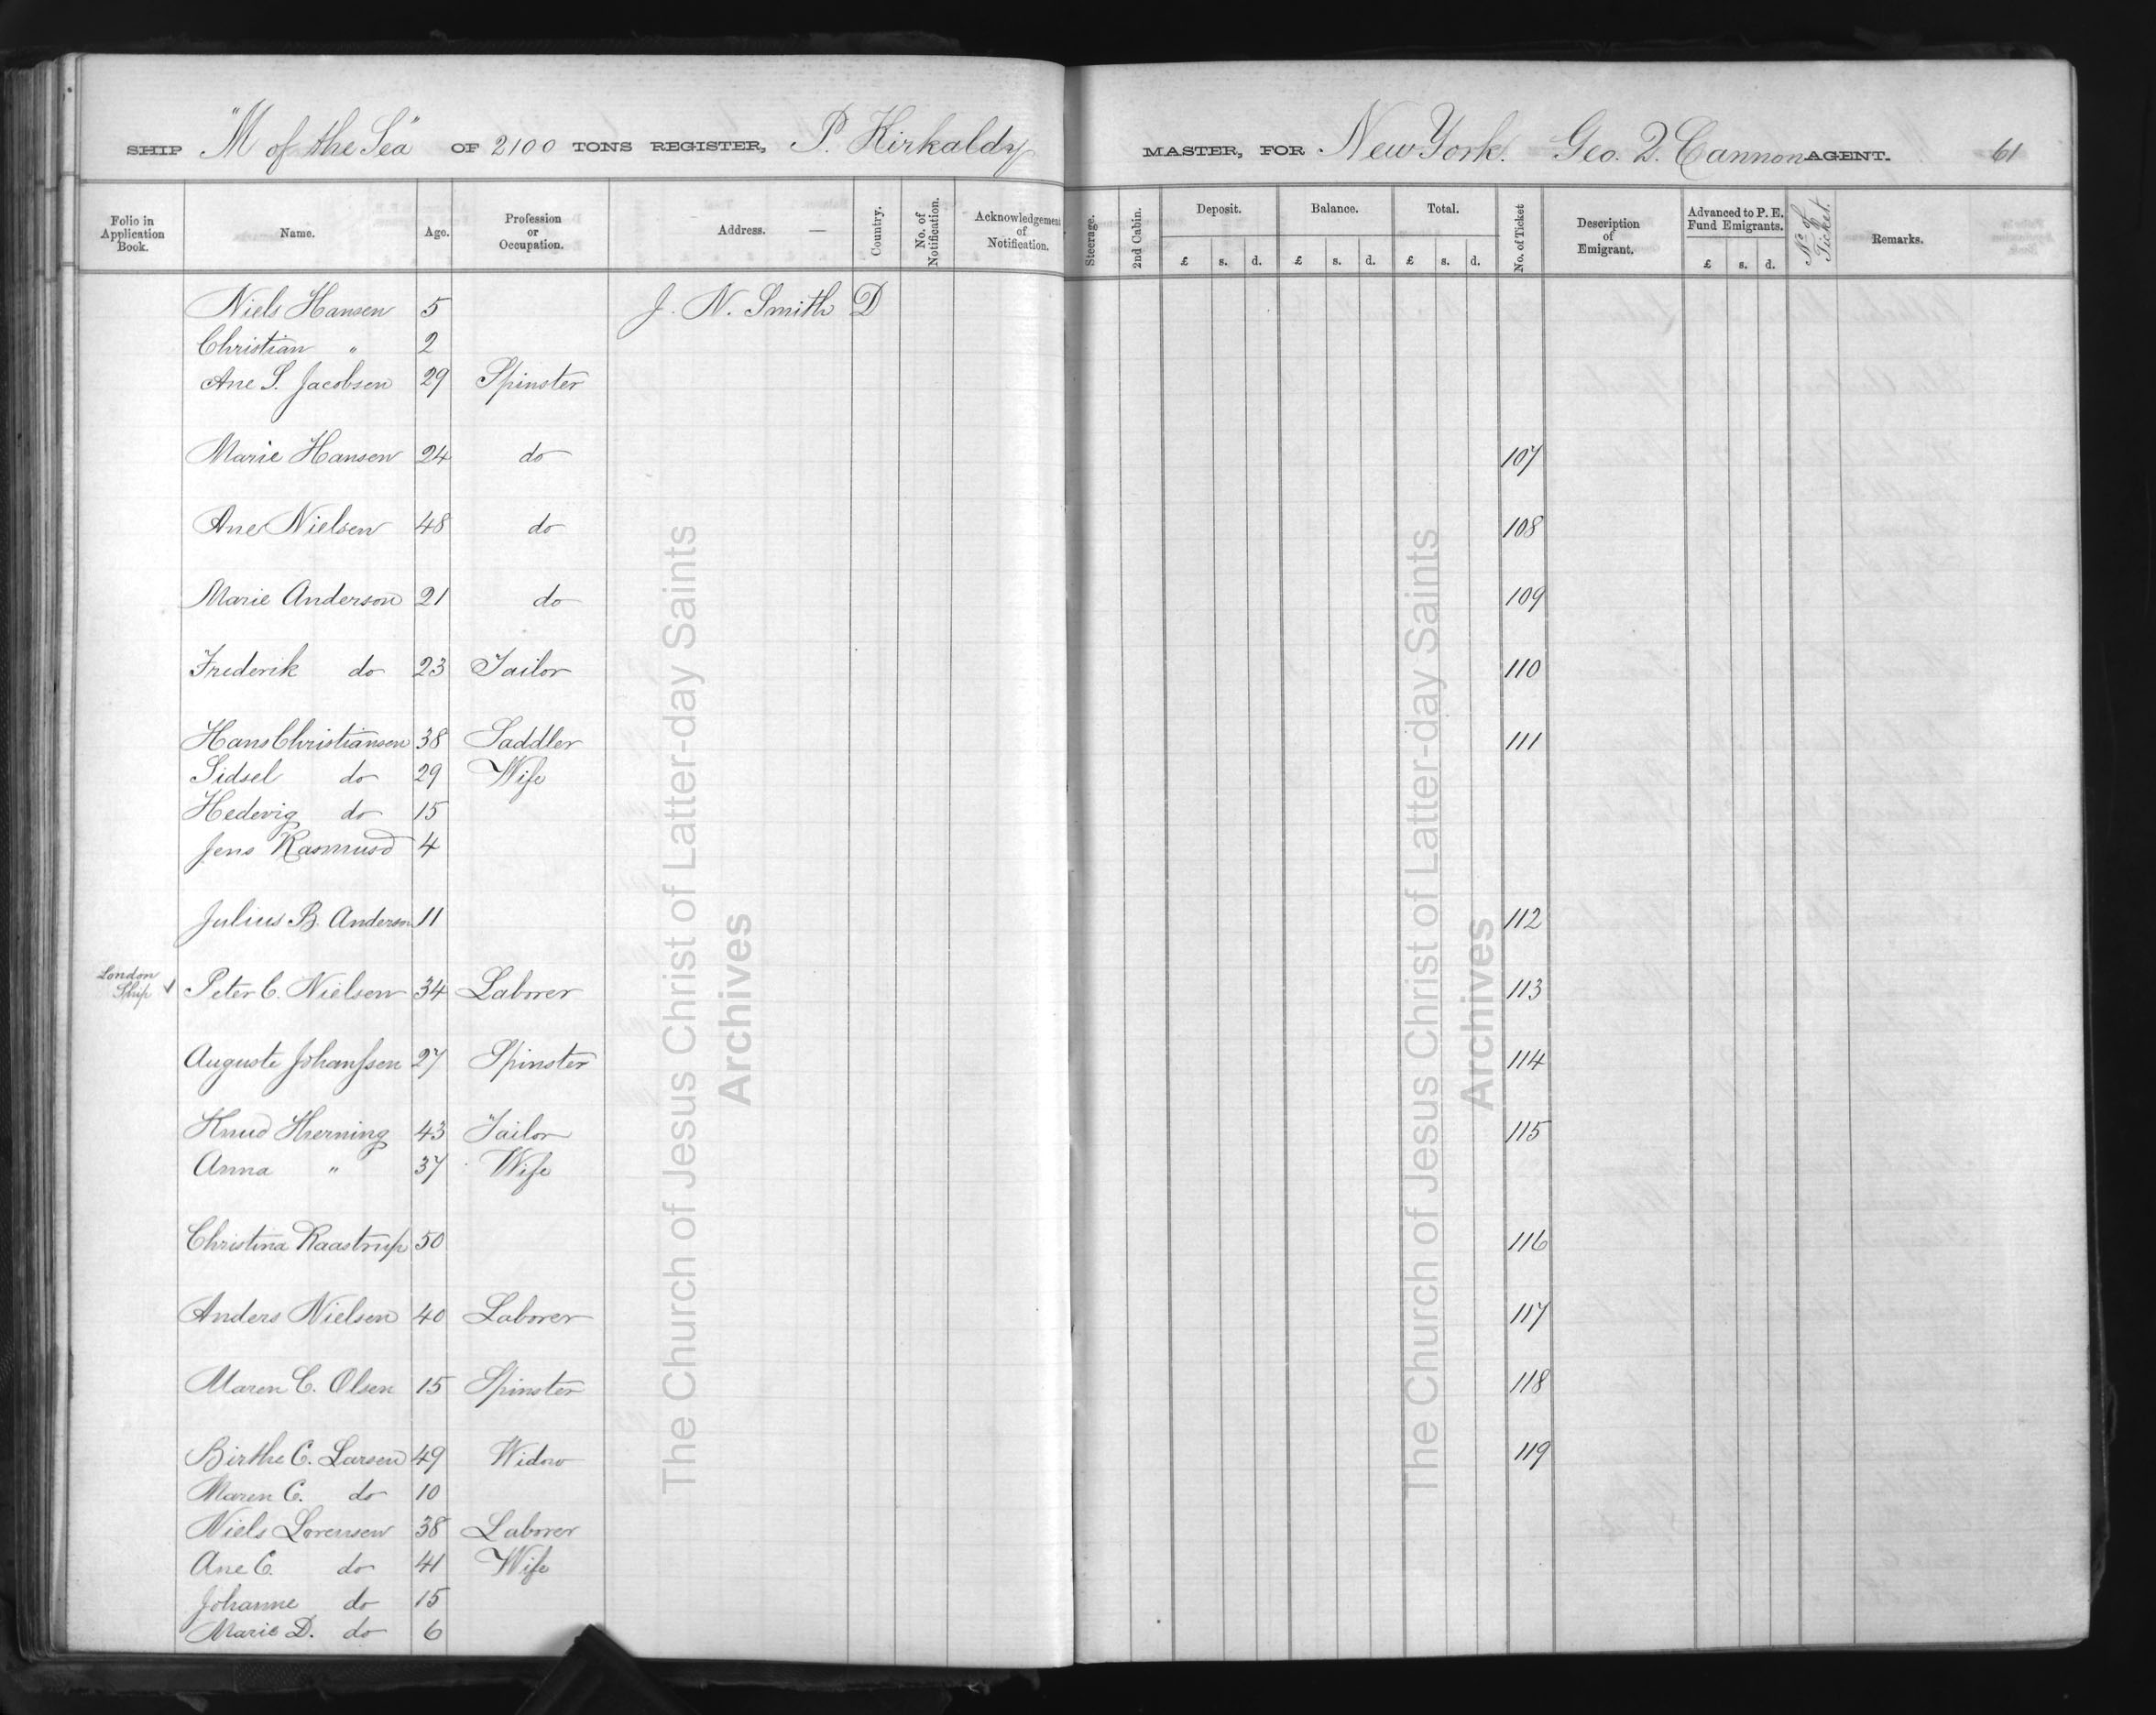 SHIP "M of the Sea" OF 2100 TONS REGISTER, P. Kirkaldy MASTER, FOR New York. Geo. Q. Cannon AGENT. 61
Folio in Application Book. Name. Age. Profession or Occupation. Address. — Country. No. of Notification. Acknowledgement of Notification. Steerage. 2nd Cabin. Deposit. Balance. Total. No. of Ticket Description of Emigrant. Advanced to P. E. Fund Emigrants. No. of Ticket. Remarks.
£ s. d. £ s. d. £ s. d. £ s. d.
Niels Hansen 5 J. N. Smith D
Christian " 2
Ane S. Jacobsen 29 Spinster
Marie Hansen 24 do 107
Ane Nielsen 48 do 108
Marie Anderson 21 do 109
Frederik do 23 Tailor 110
Hans Christiansen 38 Saddler 111
Sidsel do 29 Wife
Hedevig do 15
Jens Rasmusd 4
Julius B. Anderson 11 112
London Ship ✓ Peter C. Nielsen 34 Laborer 113
Auguste Johanssen 27 Spinster 114
Knud Hierning 43 Tailor 115
Anna " 37 Wife
Christina Raastrup 50 116
Anders Nielsen 40 Laborer 117
Maren C. Olsen 15 Spinster 118
Birthe C. Larsen 49 Widow 119
Maren C. do 10
Niels Lorensen 38 Laborer
Ane C. do 41 Wife
Johanne do 15
Marie D. do 6
The Church of Jesus Christ of Latter-day Saints
Archives
The Church of Jesus Christ of Latter-day Saints
Archives